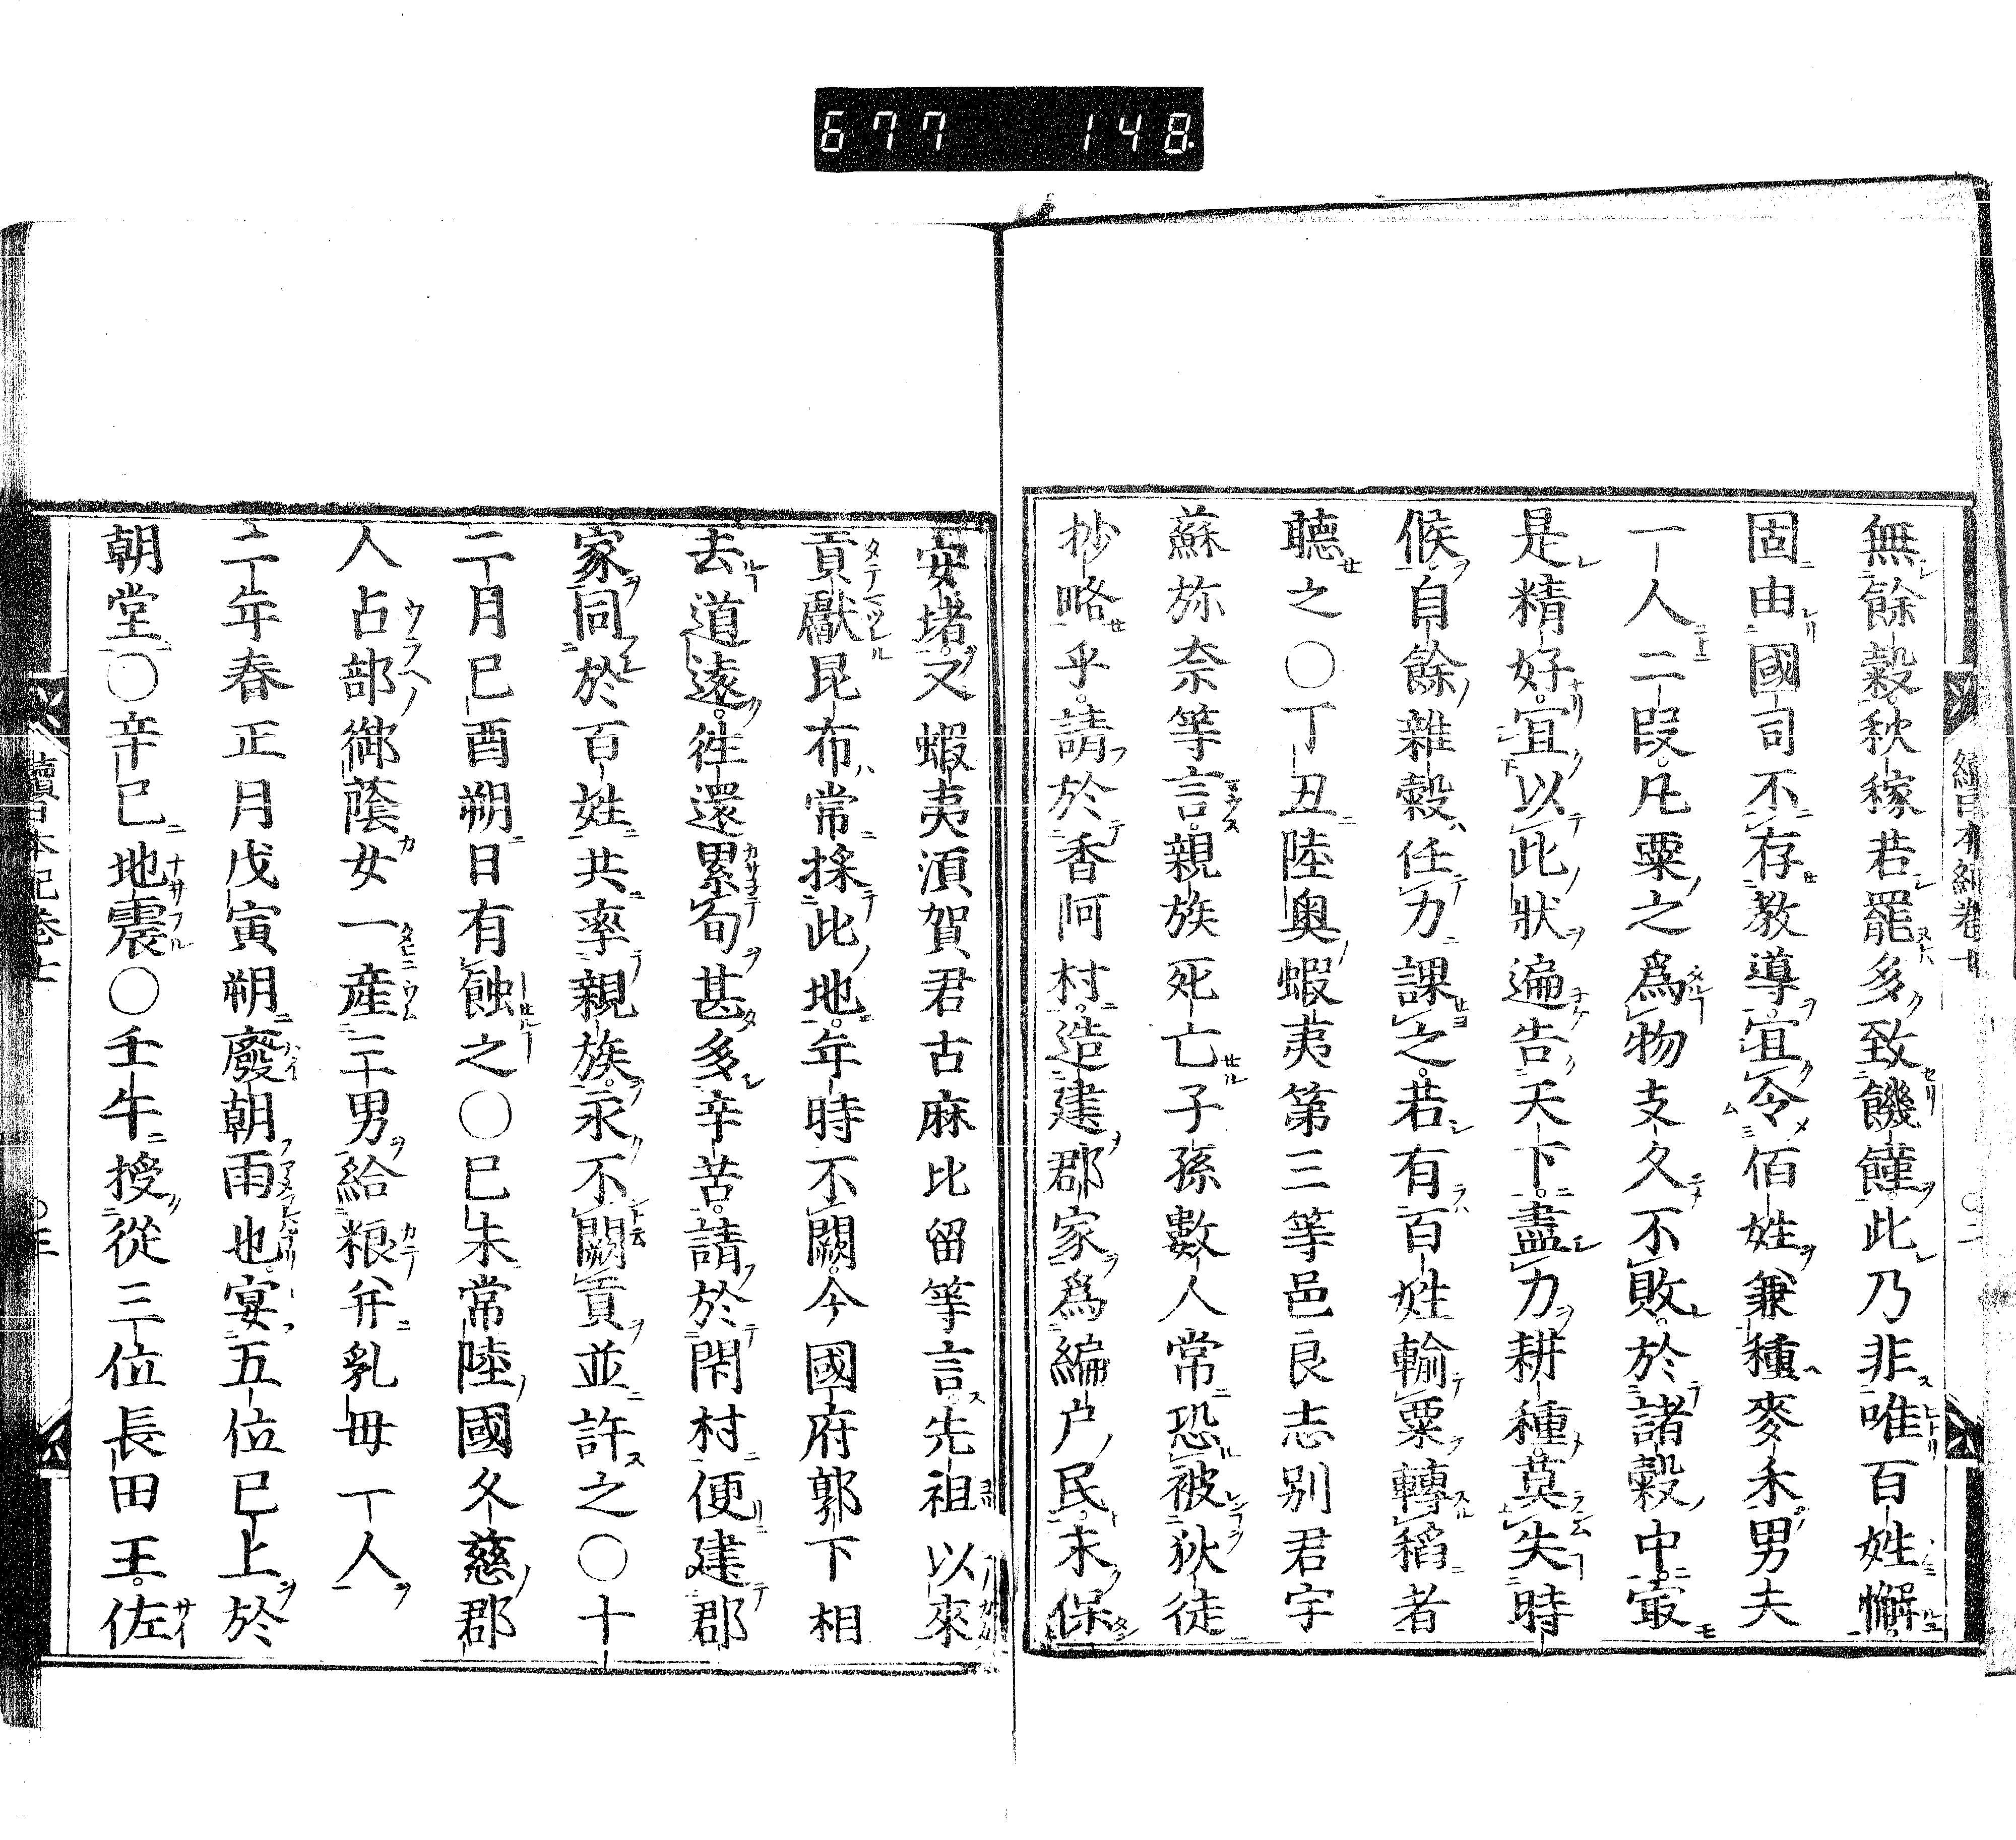 677 148
無餘穀秋稼若罷多致饑饉此乃非唯百姓懈
固由國司不存教導宜令佰姓兼種麥禾男夫
一人二段凡粟之爲物支久不敗於諸穀中㝡
是精好宜以此狀遍告天下盡力耕種莫失時
候自餘雜穀任力課之若有百姓輸粟轉稻者
聽之〇丁丑陸奧蝦夷第三等邑良志別君宇
蘇弥奈等言親族死亡子孫數人常恐被狄徒
抄略乎請於香河村造建郡家爲編户民永保
安堵又蝦夷湏賀君古麻比留等言先祖以來
貢獻昆布常採此地年時不闕今國府郭下相
去道遠往還累旬甚多辛苦請於閇村便建郡
家同於百姓共率親族永不闕貢並許之〇十
二月巳酉朔日有蝕之〇巳未常陸國久慈郡
人占部御蔭女一産三男給粮并乳母一人
二年春正月戊寅朔廢朝雨也宴五位已上於
朝堂〇辛巳地震〇壬午授從三位長田王佐